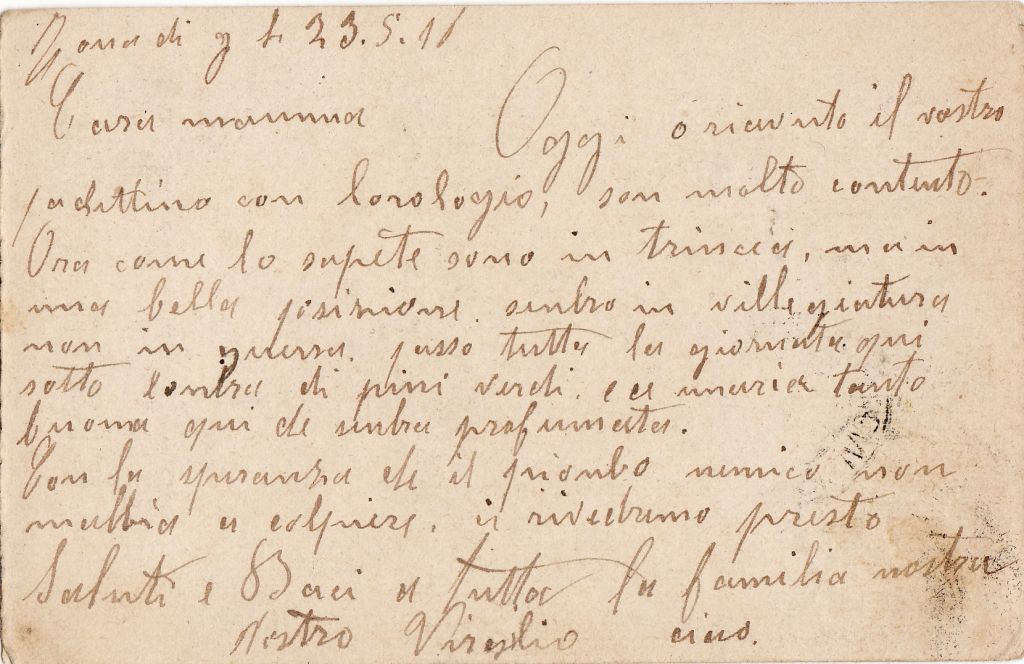 Zona di g le 23.5.16
Cara mamma Oggi o riavuto il vostro
pachettino con lorologio, son molto contento.
Ora come lo sapete sono in trincea, ma in
una bella posizione. senbro in villegiatura
non in guerra. passo tutta la giornata qui
sotto lonbra di pini verdi. e ce unaria tanto
buona qui de senbra profumata.
Con la speranza che il pionbo nemico non
mabbia a colpire. ci rivedremo presto
Saluti e Baci a tutta la familia nostra
Vostro Virgilio ciao.